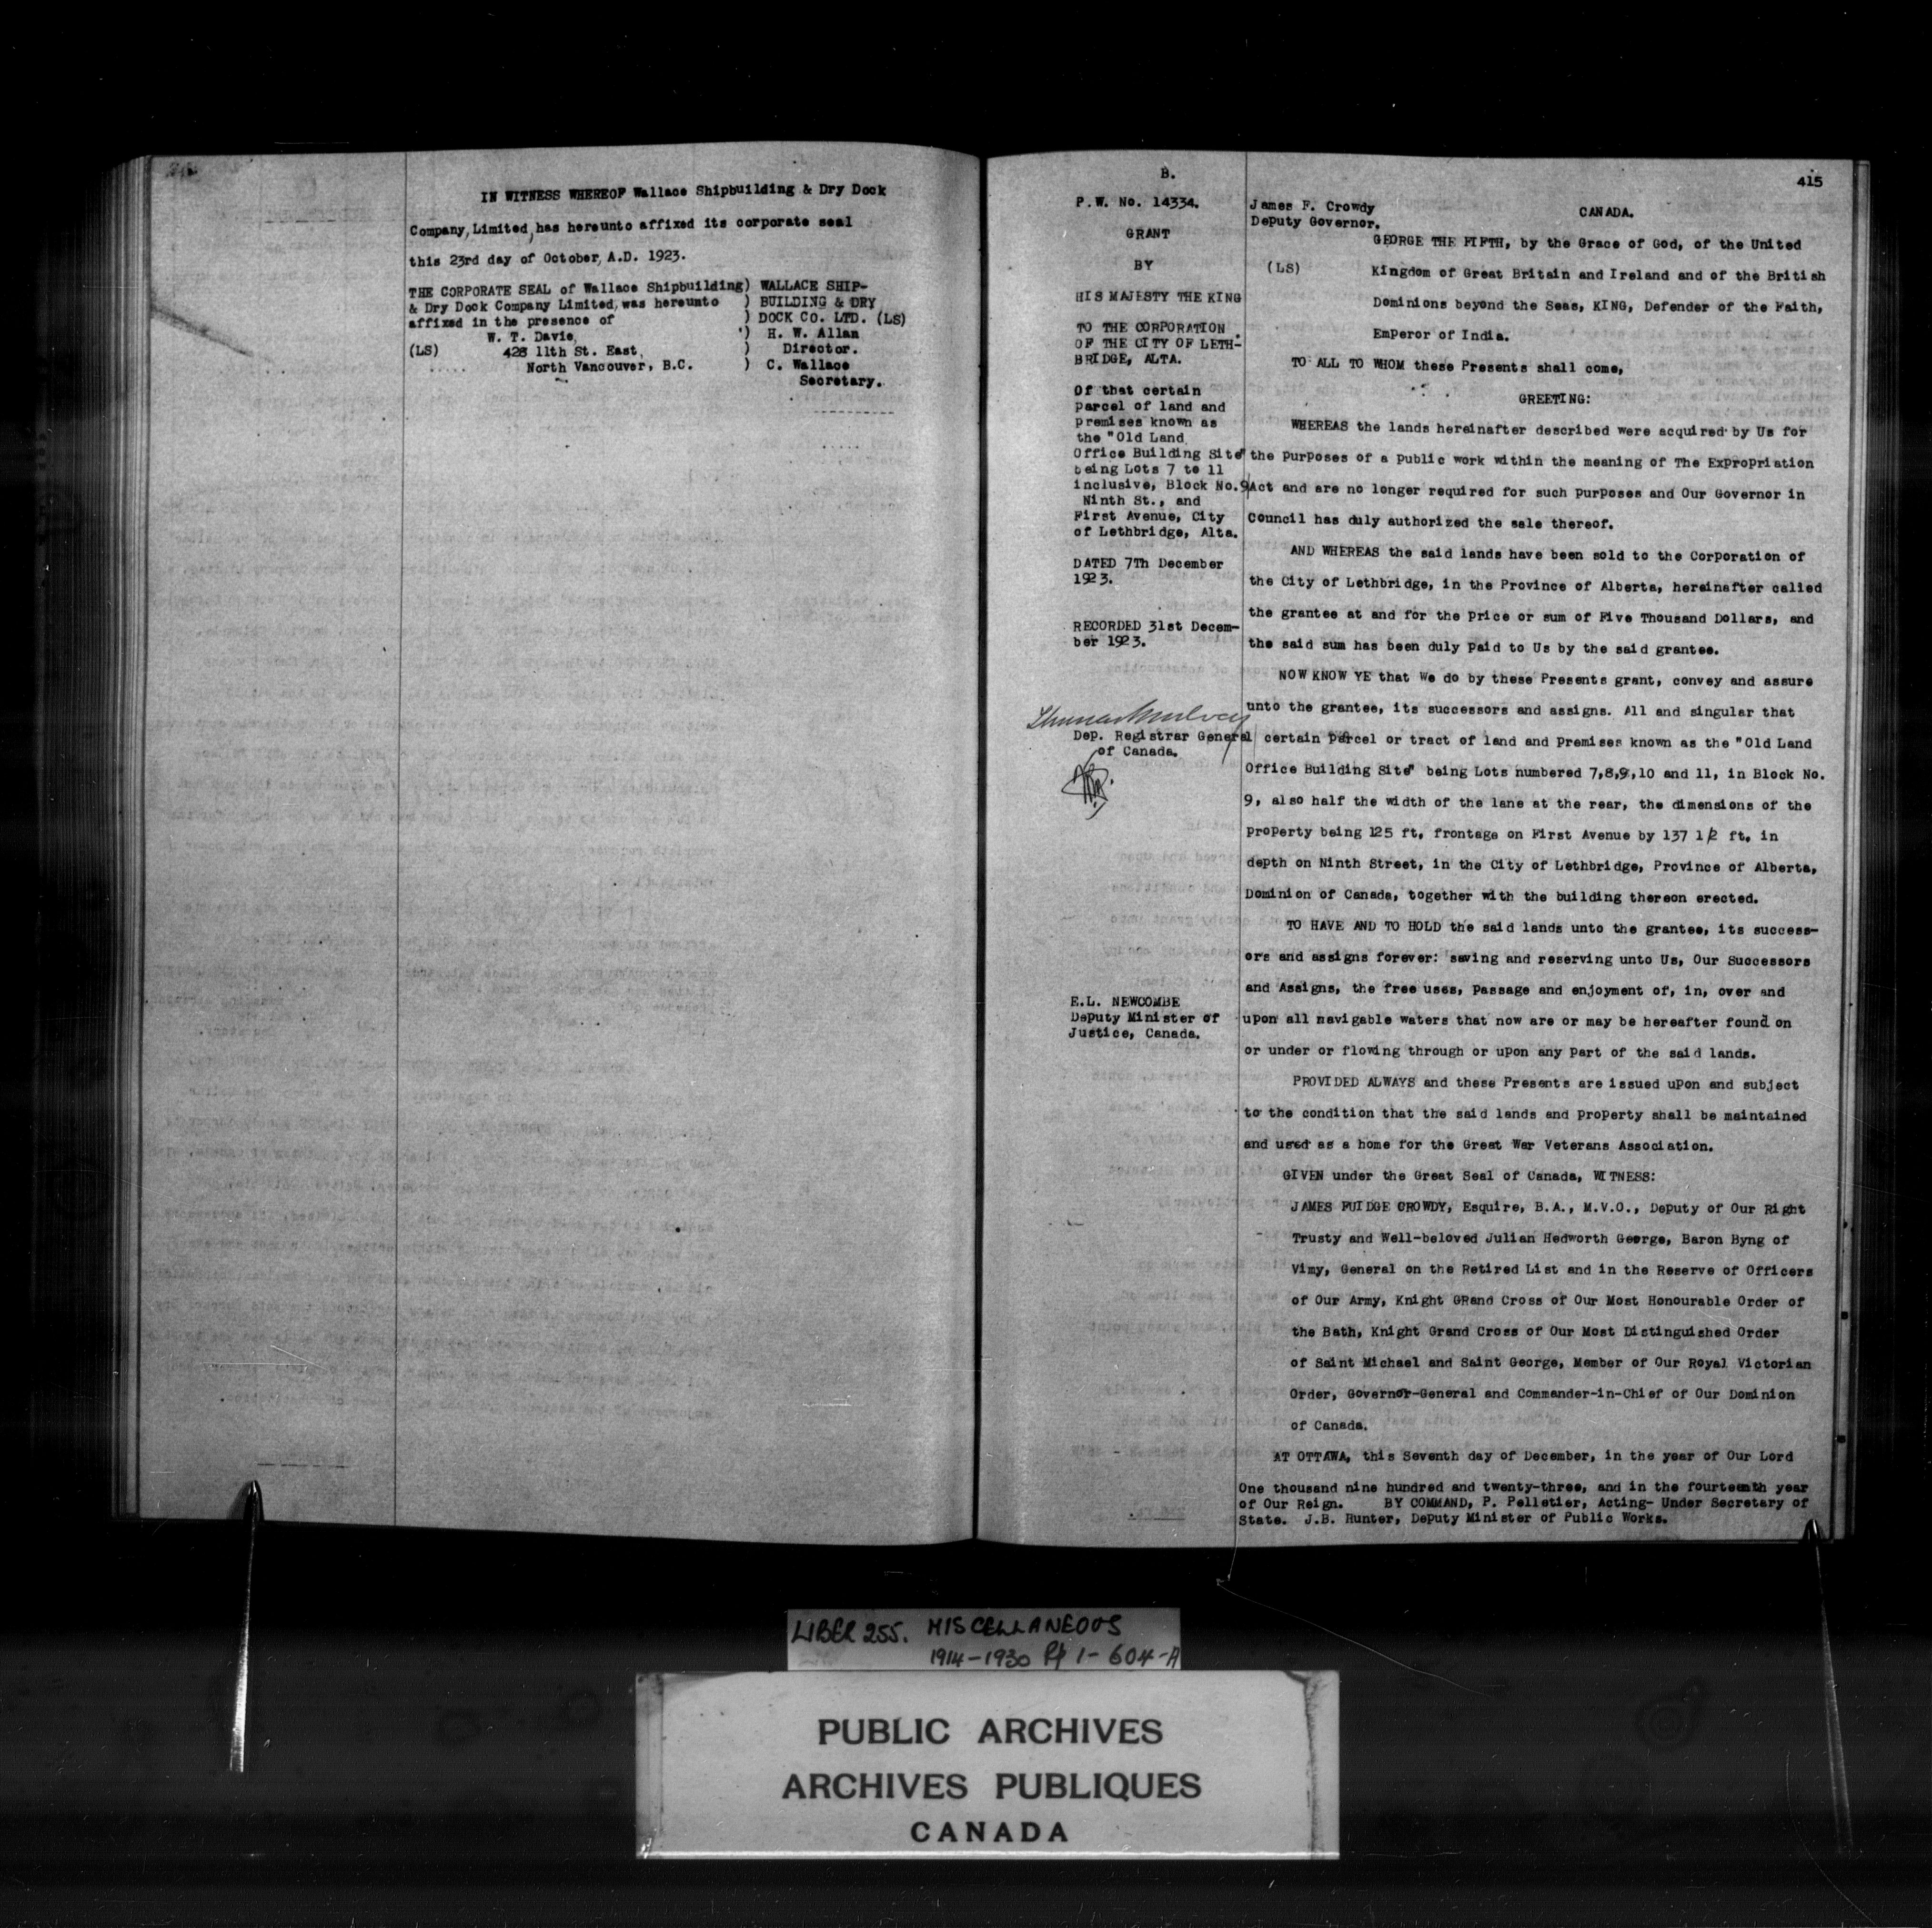 IN WITNESS WHEREOF Wallace Shipbuilding & Dry Dock
Company, Limited, has hereunto affixed its corporate seal
this 23rd day of October, A.D. 1923.
THE CORPORATE SEAL of Wallace Shipbuilding) WALLACE SHIP-
& Dry Dock Company Limited, was hereunto ) BUILDING & DRY
affixed in the presence of ) DOCK CO. LTD. (LS)
W. T. Davie, ) H. W. Allan
(LS) 428 11th St. East, ) Director.
North Vancouver, B.C. ) C. Wallace
Secretary.
B.
P.W. No. 14334.
GRANT
BY
HIS MAJESTY THE KING
TO THE CORPORATION
OF THE CITY OF LETH-
BRIDGE, ALTA.
Of that certain
parcel of land and
premises known as
the "Old Land
Office Building Site"
being Lots 7 to 11
inclusive, Block No.9
Ninth St., and
First Avenue, City
of Lethbridge, Alta.
DATED 7Th December
1923.
RECORDED 31st Decem-
ber 1923.
Thomas Mulvey
Dep. Registrar General
of Canada.
E.L. NEWCOMBE
Deputy Minister of
Justice, Canada.
415
James F. Crowdy
Deputy Governor.
CANADA.
GEORGE THE FIFTH, by the Grace of God, of the United
(LS) Kingdom of Great Britain and Ireland and of the British
Dominions beyond the Seas, KING, Defender of the Faith,
Emperor of India.
TO ALL TO WHOM these Presents shall come,
GREETING:
WHEREAS the lands hereinafter described were acquired by Us for
the purposes of a public work within the meaning of The Expropriation
Act and are no longer required for such purposes and Our Governor in
Council has duly authorized the sale thereof.
AND WHEREAS the said lands have been sold to the Corporation of
the City of Lethbridge, in the Province of Alberta, hereinafter called
the grantee at and for the price or sum of Five Thousand Dollars, and
the said sum has been duly paid to Us by the said grantee.
NOW KNOW YE that We do by these Presents grant, convey and assure
unto the grantee, its successors and assigns. All and singular that
certain parcel or tract of land and premises known as the "Old Land
Office Building Site" being Lots numbered 7,8,9,10 and 11, in Block No.
9, also half the width of the lane at the rear, the dimensions of the
property being 125 ft. frontage on First Avenue by 137 1/2 ft. in
depth on Ninth Street, in the City of Lethbridge, Province of Alberta,
Dominion of Canada, together with the building thereon erected.
TO HAVE AND TO HOLD the said lands unto the grantee, its success-
ors and assigns forever: saving and reserving unto Us, Our Successors
and Assigns, the free uses, passage and enjoyment of, in, over and
upon all navigable waters that now are or may be hereafter found on
or under or flowing through or upon any part of the said lands.
PROVIDED ALWAYS and these Presents are issued upon and subject
to the condition that the said lands and property shall be maintained
and used as a home for the Great War Veterans Association.
GIVEN under the Great Seal of Canada, WITNESS:
JAMES FUIDGE CROWDY, Esquire, B.A., M.V.O., Deputy of Our Right
Trusty and Well-beloved Julian Hedworth George, Baron Byng of
Vimy, General on the Retired List and in the Reserve of Officers
of Our Army, Knight GRand Cross of Our Most Honourable Order of
the Bath, Knight Grand Cross of Our Most Distinguished Order
of Saint Michael and Saint George, Member of Our Royal Victorian
Order, Governor-General and Commander-in-Chief of Our Dominion
of Canada.
AT OTTAWA, this Seventh day of December, in the year of Our Lord
One thousand nine hundred and twenty-three, and in the fourteenth year
of Our Reign. BY COMMAND, P. Pelletier, Acting- Under Secretary of
State. J.B. Hunter, Deputy Minister of Public Works.
LIBER 255. MISCELLANEOUS
1914-1930 Pp 1-604-A
PUBLIC ARCHIVES
ARCHIVES PUBLIQUES
CANADA